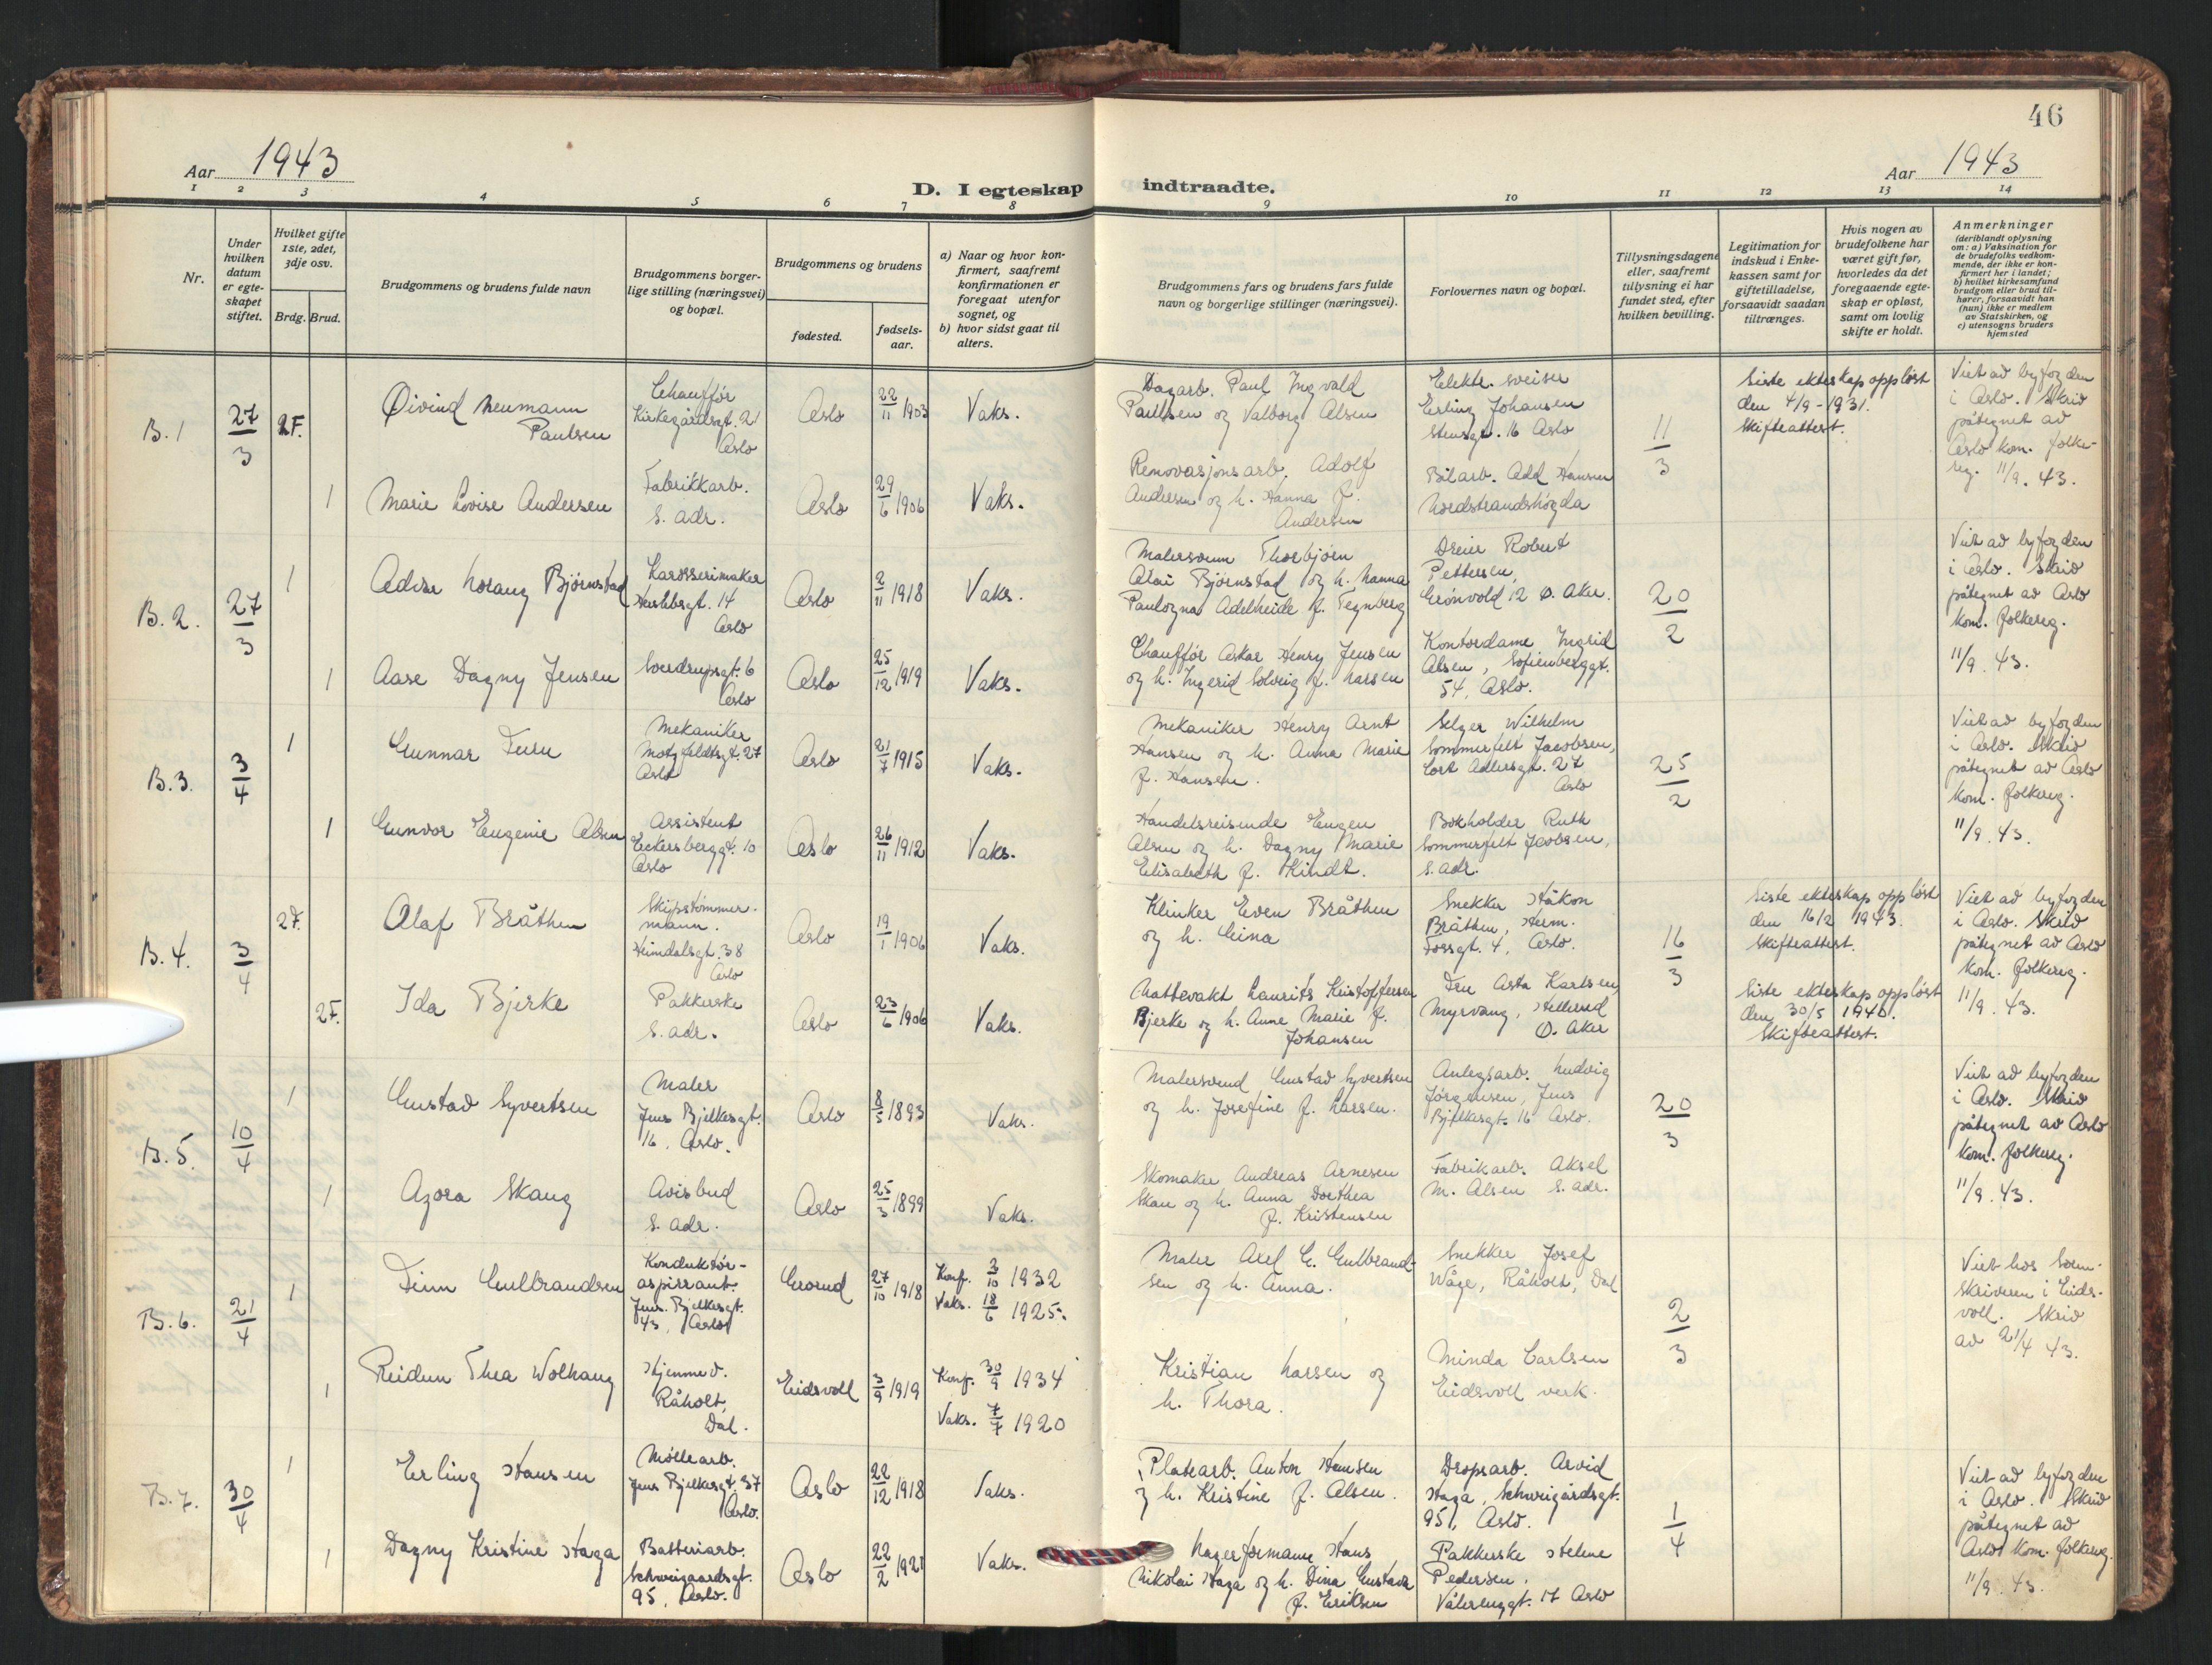 46
Aar 1943
D. I egteskap indtraadte.
Aar 1943
1 2 3 4 5 6 7 8 9 10 11 12 13 14
Nr.
Under hvilken datum er egteskapet stiftet.
Hvilket gifte 1ste, 2det, 3dje osv.
Brdg. Brud.
Brudgommens og brudens fulde navn
Brudgommens borgerlige stilling (næringsvei) og bopæl.
Brudgommens og brudens
fødested.
fødselsaar.
a) Naar og hvor konfirmert, saafremt konfirmationen er foregaat utenfor sognet, og
b) hvor sidst gaat til alters.
Brudgommens fars og brudens fars fulde navn og borgerlige stillinger (næringsvei).
Forlovernes navn og bopæl.
Tillysningsdagene eller, saafremt tillysning ei har fundet sted, efter hvilken bevilling.
Legitimation for indskud i Enkekassen samt for giftetilladelse, forsaavidt saadan tiltrænges.
Hvis nogen av brudefolkene har været gift før, hvorledes da det foregaaende egteskap er opløst, samt om lovlig skifte er holdt.
Anmerkninger
(deriblandt oplysning om: a) Vaksination for de brudefolks vedkommende, der ikke er konfirmert her i landet; b) hvilket kirkesamfund brudgom eller brud tilhører, forsaavidt han (hun) ikke er medlem av Statskirken, og c) utensogns bruders hjemsted
B. 1
27/3
2F.
Øivind Neumann
Paulsen
Chauffør
Kirkegårdsgt. 21
Oslo
Oslo
22/11 1903
Vaks.
Dagarb. Paul Ingvald
Paulsen og Valborg Olsen
Elektr. sveiser
Erling Johansen
Stensgt. 16 Oslo
11/3
Siste ekteskap oppløst
den 4/9 - 1931.
Skifteattest.
Viet av byfogden
i Oslo. Skriv
påtegnet av
Oslo kom. folke-
reg. 11/9. 43.
1
Marie Lovise Andersen
Fabrikkarb.
S. adr.
Oslo
29/6 1906
Vaks.
Renovasjonsarb. Adolf
Andersen og h. Hanna f.
Andersen
Bilarb. Odd Hansen
Nordstrandshøgda
B. 2.
27/3
1
Bjørnstad
Karosserimaker
14
Oslo
Oslo
2/11 1918
Vaks.
Malersvenn Thorbjørn
Olai Bjørnstad og h. Nanna
Adelheide f. Tegnberg
Dreier Robert
Pettersen,
Grönvold 12 Ø. Aker.
20/2
Viet av byfogden
i Oslo. Skriv
påtegnet av Oslo
kom. folkereg.
11/9. 43.
1
Aase Dagny Jensen
Sverdrupsgt. 6
Oslo
Oslo
25/12 1919
Vaks.
Chauffør Oskar Henry Jensen
og h. Ingerid Solveig f. Larsen
Kontordame Ingrid
Olsen, Sofienberggt.
54, Oslo.
B. 3.
3/4
1
Gunnar Furu
Mekaniker
Motzfeldtsgt. 27
Oslo
Oslo
21/7 1915
Vaks.
Mekaniker Henry Arnt
Hansen og h. Anna Marie
f. Hansen.
Selger Wilhelm
Sommerfelt Jacobsen,
Cort Adlersgt. 27
Oslo
25/2
Viet av byfogden
i Oslo. Skriv
påtegnet av Oslo
kom. folkereg.
11/9. 43.
1
Gunvor Eugenie Olsen
Assistent
Eckersberggt. 10
Oslo
Oslo
26/11 1912
Vaks.
Handelsreisende Eugen
Olsen og h. Dagny Marie
Elisabeth f. Kindt.
Bokholder Ruth
Sommerfelt Jacobsen,
S. adr.
B. 4.
3/4
2F.
Olaf Bråthen
Skipstømmer-
mann.
Heimdalsgt. 38
Oslo
Oslo
19/1 1906
Vaks.
Klinker Even Bråthen
og h. Gina
Snekker Håkon
Bråthen, Herm.
Fossgt. 4, Oslo.
16/3
Siste ekteskap oppløst
den 16/2 1943.
Skifteattest.
Viet av byfogden
i Oslo. Skriv
påtegnet av Oslo
kom. folkereg.
11/9. 43.
2F.
Ida Bjerke
Pakkerske
S. adr.
Oslo
23/6 1906
Vaks.
Nattevakt Laurits Kristoffersen
Bjerke og h. Anne Marie f.
Johansen
Fru Asta Karlsen,
Myrvang, Hellerud
Ø. Aker
Siste ekteskap oppløst
den 30/5 1940.
Skifteattest.
B. 5.
10/4
1
Gustav Syvertsen
Maler
Jens Bjelkesgt.
16, Oslo.
Oslo
8/5 1893
Vaks.
Malersvend Gustav Syvertsen
og h. Josefine f. Larsen.
Anlegsarb. Ludvig
Jørgensen, Jens
Bjelkesgt. 16 Oslo.
20/3
Viet av byfogden
i Oslo. Skriv
påtegnet av Oslo
kom. folkereg.
11/9. 43.
1
Agora Skaug
Avisbud
S. adr.
Oslo
25/3 1899
Vaks.
Skomaker Andreas Arnesen
Skau og h. Anna Dorthea
f. Kristensen
Fabrikarb. Aksel
M. Olsen S. adr.
B. 6.
21/4
1
Finn Gulbrandsen
Konduktør-
aspirant.
Jens Bjelkesgt.
43, Oslo
Grorud
27/10 1918
Konf. 2/10 1932
Vaks. 18/6 1925.
Maler Axel G. Gulbrand-
sen og h. Anna.
Snekker Josef
Wåge, Råholt, Dal
2/3
Viet hos Soren-
skriveren i Eids-
voll. Skriv
av 21/4 43.
1
Reidun Thea Wolhaug
Hjemmev.
Råholt,
Dal.
Eidsvoll
3/9 1919
Konf. 30/9 1934
Vaks. 7/7 1920
Kristian Larsen og
h. Thora.
Minda Carlsen
Eidsvoll verk.
B. 7.
30/4
1
Erling Hansen
Møllearb.
Jens Bjelkesgt. 37
Oslo.
Oslo
22/12 1918
Vaks.
Platearb. Anton Hansen
og h. Kristine f. Olsen.
Dropsarb. Arvid
Haga, Schweigårdsgt.
95, Oslo.
1/4
Viet av byfogden
i Oslo. Skriv
påtegnet av
Oslo kom. folkereg.
11/9. 43.
1
Dagny Kristine Haga
Batteriarb.
Schweigaardsgt.
95, Oslo.
Oslo
22/2 1921
Vaks.
Lagerformann Hans
Nikolai Haga og h. Dina Gustava
f. Eriksen
Pakkerske Helene
Pedersen.
Vålerenggt. 17 Oslo